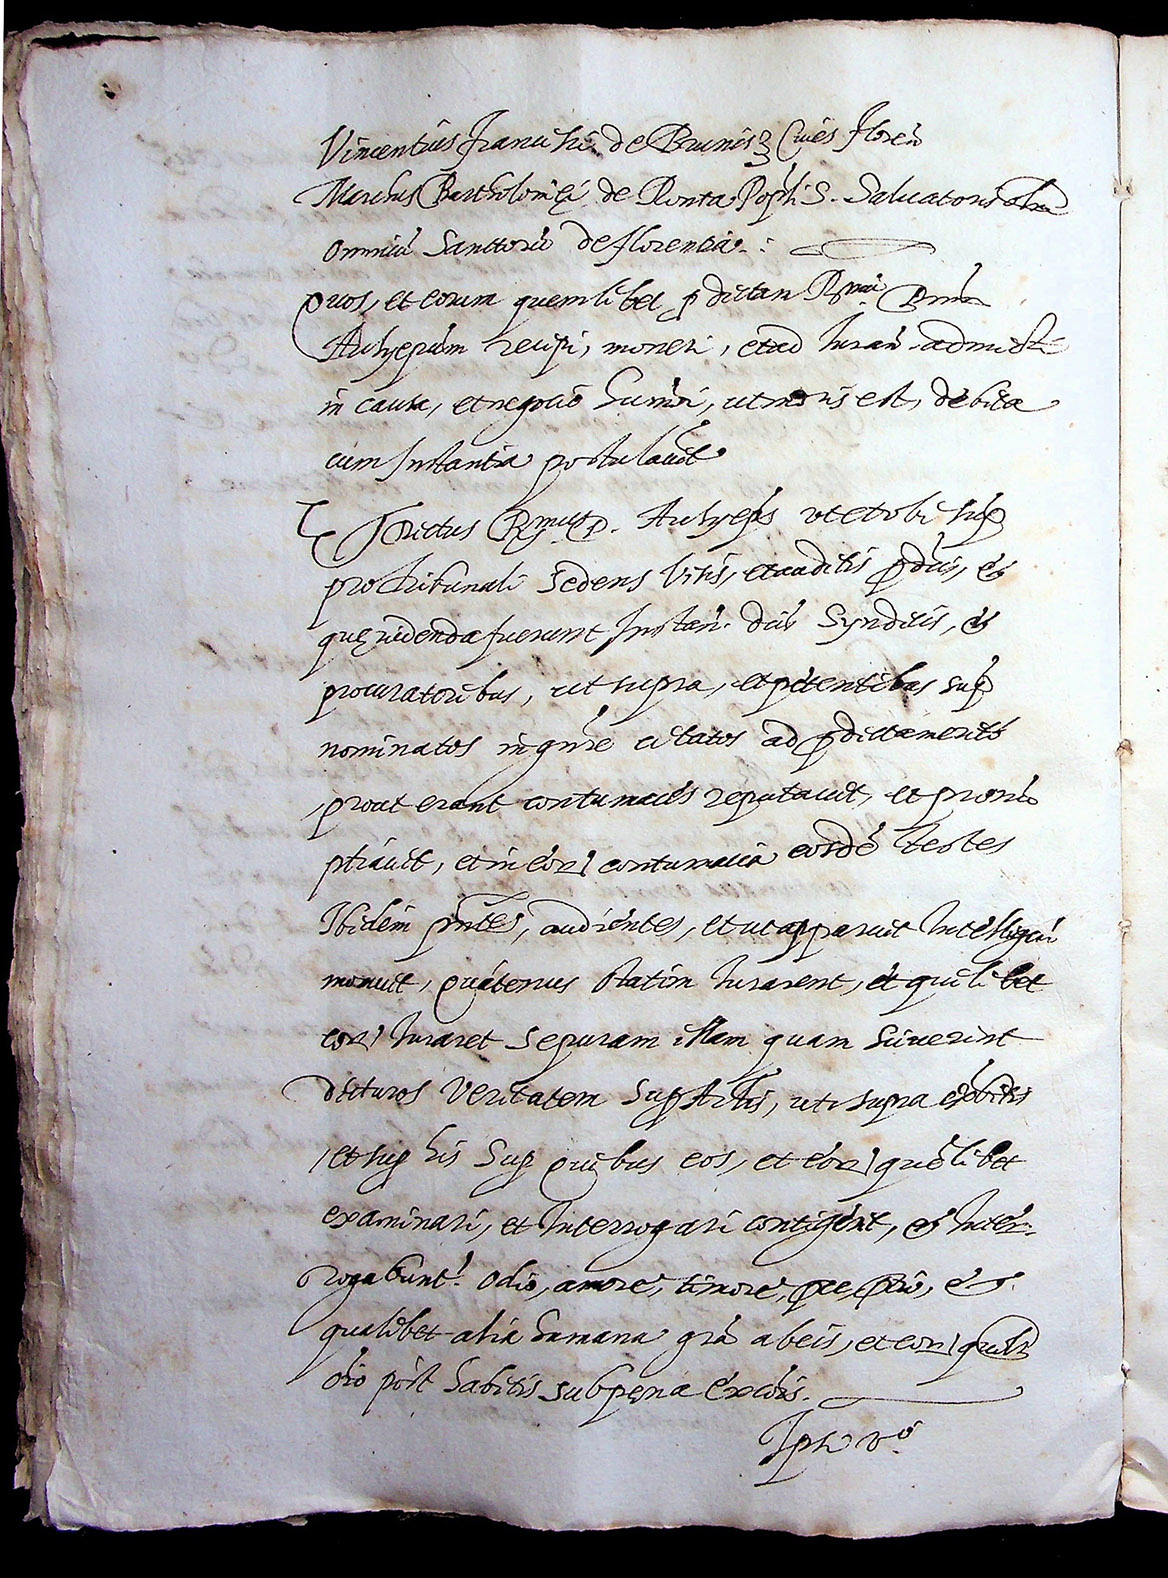 Vincentius Francisci de Brunis Cives Floreñ
Marchus Bartholomęi de Ponta Popli S. Saluatoris
omniũ Sanctorũ de florentia.:
Quos, et eorum quemlibet p dictum Rmũ Dñum
Archiepũm recipi, moneri, et ad Iurañ admitti
in causa, et negotio humõi, ut moris est, debita
cum Instantia postulauit
Dictus Rmus D. Archiepũs ut et ubi sup
pro tribunali sedens Visis, et auditis pdictis, et
quę uidenda fuerunt Instañ. dictis Syndicis, et
procuratoribus, ut supra, et petentibus sup
nominatos in genere citatos ad pdicta merito
prout erant contumaces reputauit, et pronũ
ptiauit, et in eoꝝ contumacia eosdẽ testes
Ibidem pñtes, audientes, et ut apparuit Intelligeñ
monuit, quatenus statim Iurarent, et quilibet
eoꝝ Iuraret se puram illam quam sciuerint
dicturos Veritatem sup Artlis, uti supra exhibitis
et sup his sup quibus eos, et eoꝝ quẽlibet
examinari, et Interrogari contigerit, et Inter-
rogabunt.ʳ odio, amore, timore, pce, ptio, et
qualibet alia humana grã ab eis, et eoꝝ quolibet
oĩo post habitis sub pęna excõis.
Ipsi vº